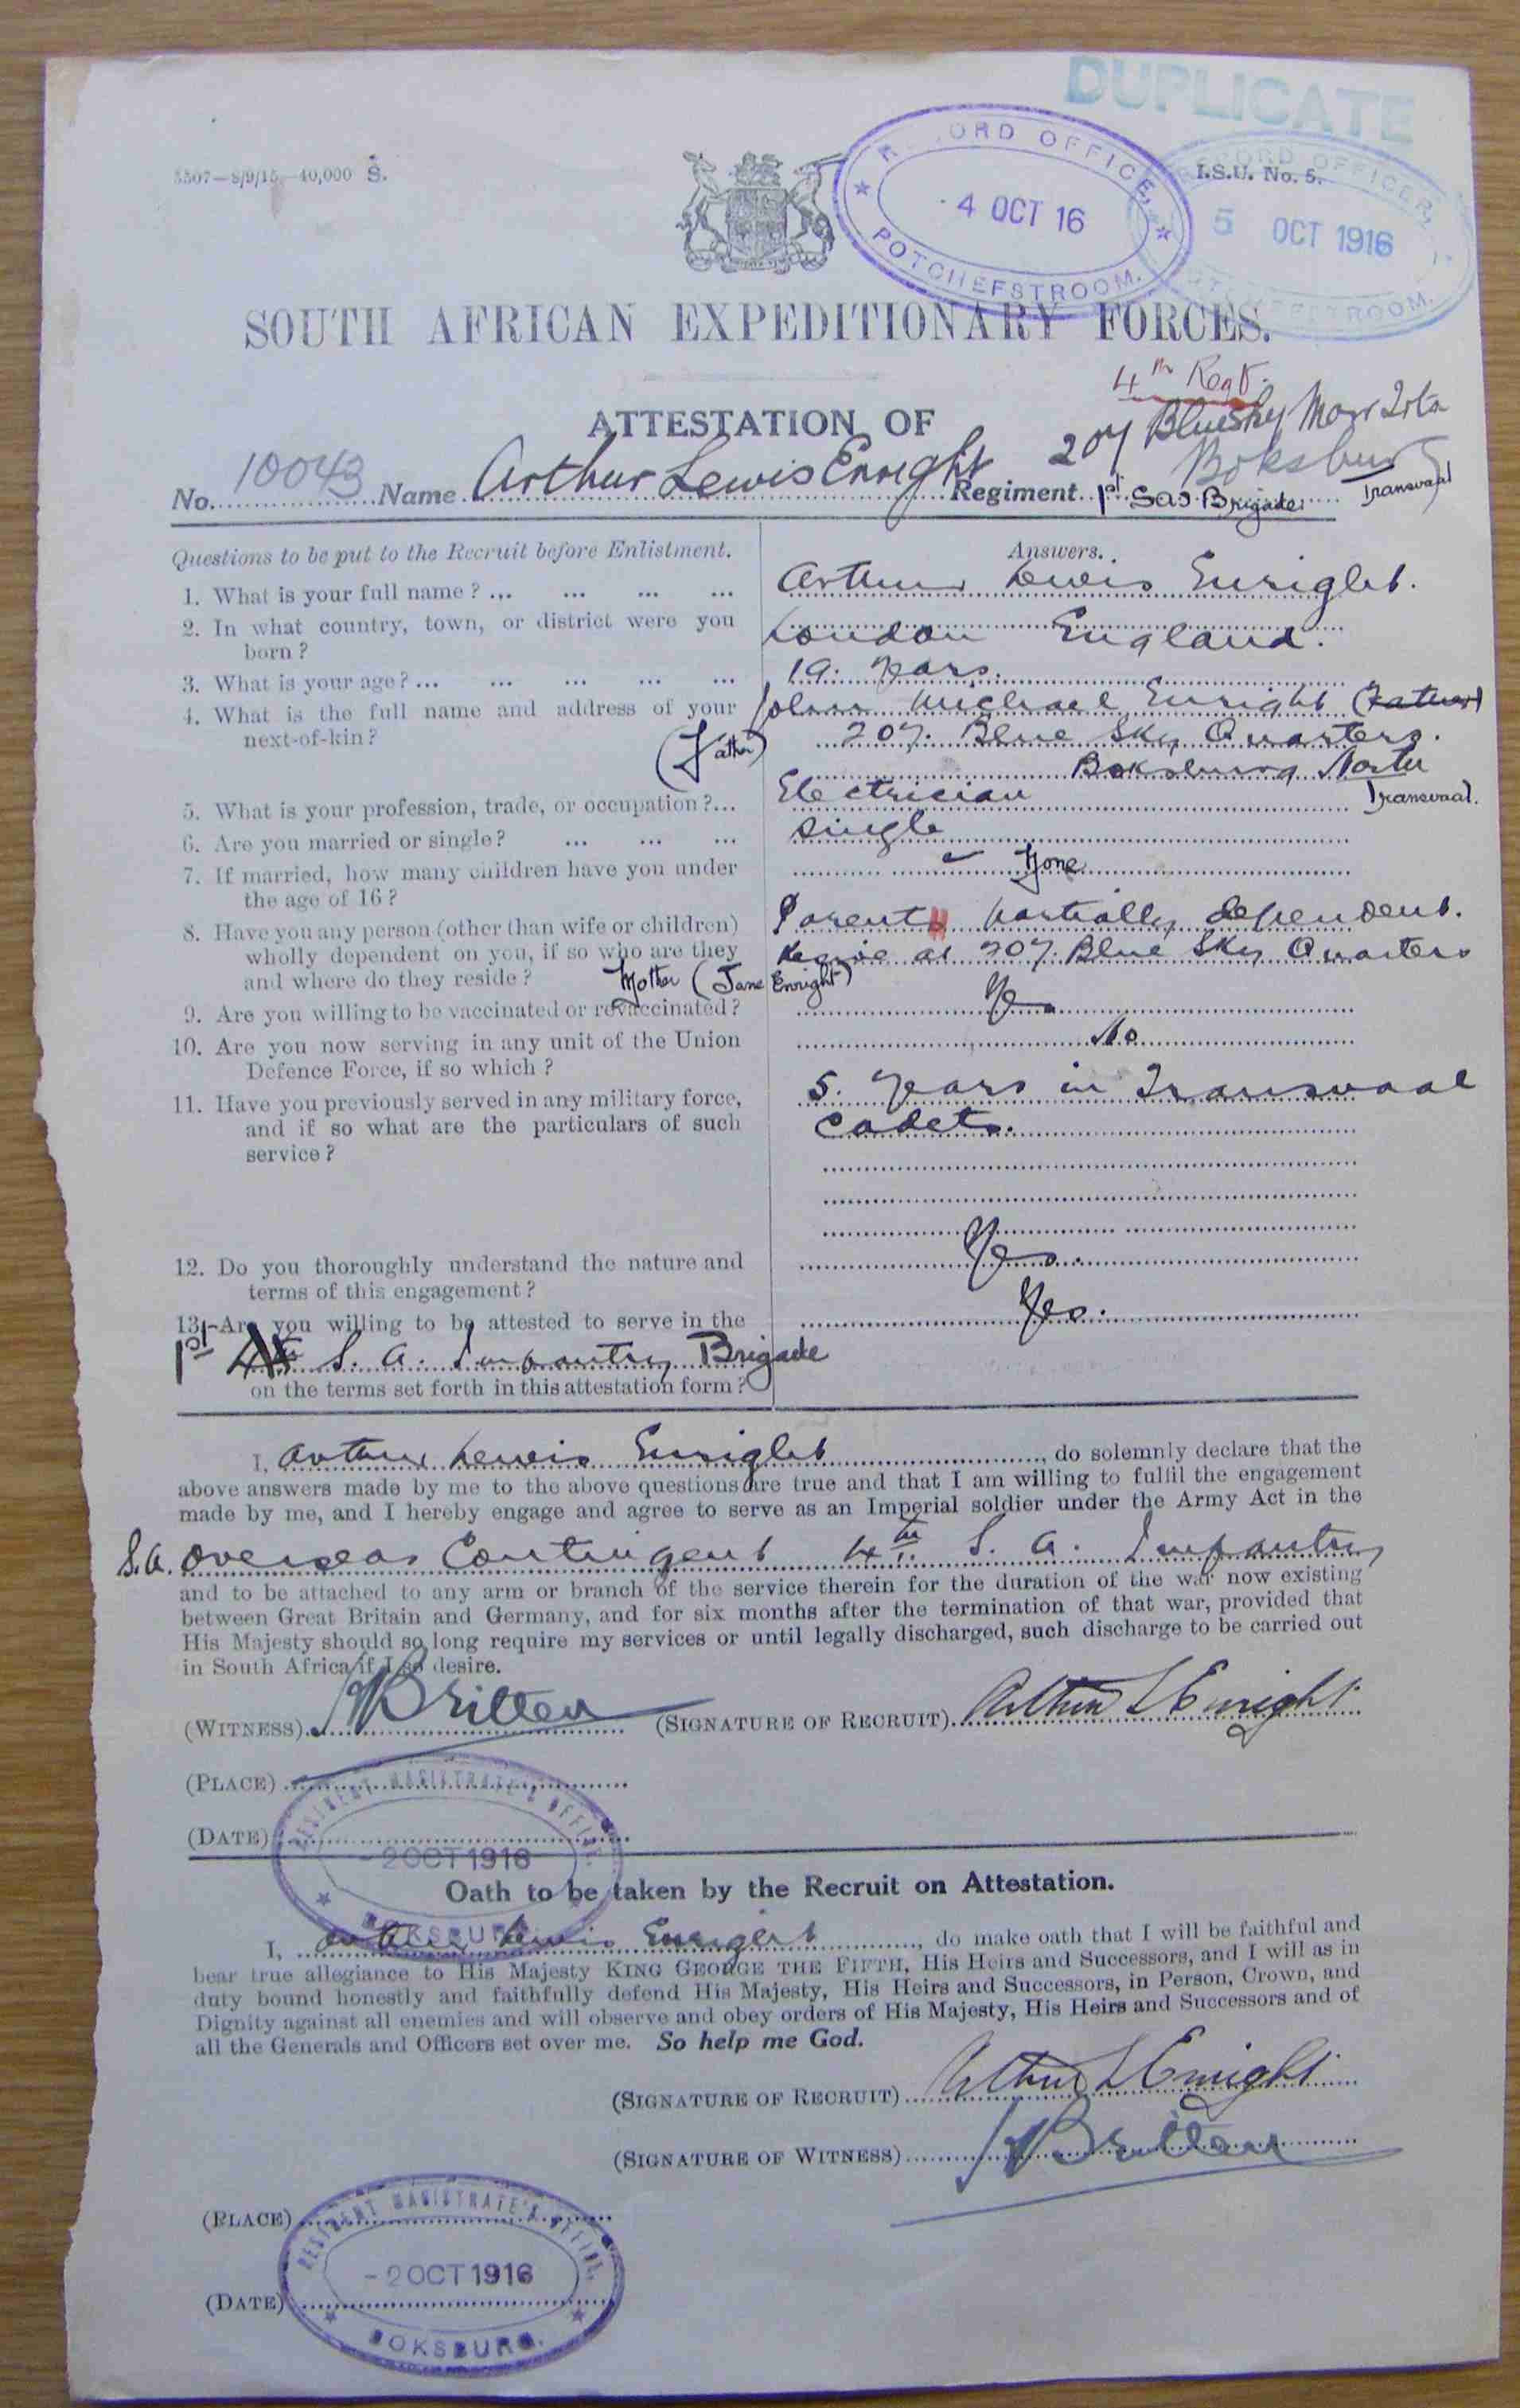 DUPLICATE
5507—8/9/15—40,000 S.
I.S.U. No. 5.
RECORD OFFICE,
- 4 OCT 16
POTCHEFSTROOM.
RECORD OFFICER,
5 OCT 1916
POTCHEFSTROOM.
SOUTH AFRICAN EXPEDITIONARY FORCES.
4th Regt.
ATTESTATION OF
207 Bluesky
Boksburg
Transvaal
No. 10043 Name Arthur Lewis Enright Regiment 1st SAI Brigade
Questions to be put to the Recruit before Enlistment.
Answers.
1. What is your full name ? ... ... ... ...
Arthur Lewis Enright.
2. In what country, town, or district were you
born ?
London England.
3. What is your age ? ... ... ... ... ...
19. Years.
4. What is the full name and address of your
next-of-kin ?
(Father)
John Michael Enright (Father)
207. Blue Sky Quarters.
Boksburg North
Transvaal.
5. What is your profession, trade, or occupation ?...
Electrician
6. Are you married or single ? ... ... ...
Single
7. If married, how many children have you under
the age of 16 ?
None
8. Have you any person (other than wife or children)
wholly dependent on you, if so who are they
and where do they reside ?
Parents partially dependent.
Reside at 207. Blue Sky Quarters
Mother (Jane Enright)
9. Are you willing to be vaccinated or revaccinated ?
Yes
10. Are you now serving in any unit of the Union
Defence Force, if so which ?
No
11. Have you previously served in any military force,
and if so what are the particulars of such
service ?
5. Years in Transvaal
Cadets.
12. Do you thoroughly understand the nature and
terms of this engagement ?
Yes.
13. Are you willing to be attested to serve in the
1st 4th S. A. Infantry Brigade
on the terms set forth in this attestation form ?
Yes.
I, Arthur Lewis Enright, do solemnly declare that the
above answers made by me to the above questions are true and that I am willing to fulfil the engagement
made by me, and I hereby engage and agree to serve as an Imperial soldier under the Army Act in the
S.A. Overseas Contingent 4th S. A. Infantry
and to be attached to any arm or branch of the service therein for the duration of the war now existing
between Great Britain and Germany, and for six months after the termination of that war, provided that
His Majesty should so long require my services or until legally discharged, such discharge to be carried out
in South Africa if I so desire.
(WITNESS) Britten (SIGNATURE OF RECRUIT) Arthur L Enright
(PLACE)
(DATE)
RESIDENT MAGISTRATE'S OFFICE.
- 2 OCT 1916
BOKSBURG.
Oath to be taken by the Recruit on Attestation.
I, Arthur Lewis Enright, do make oath that I will be faithful and
bear true allegiance to His Majesty KING GEORGE THE FIFTH, His Heirs and Successors, and I will as in
duty bound honestly and faithfully defend His Majesty, His Heirs and Successors, in Person, Crown, and
Dignity against all enemies and will observe and obey orders of His Majesty, His Heirs and Successors and of
all the Generals and Officers set over me. So help me God.
(SIGNATURE OF RECRUIT) Arthur L Enright
(SIGNATURE OF WITNESS) Britten
(PLACE)
(DATE)
RESIDENT MAGISTRATE'S OFFICE.
- 2 OCT 1916
BOKSBURG.